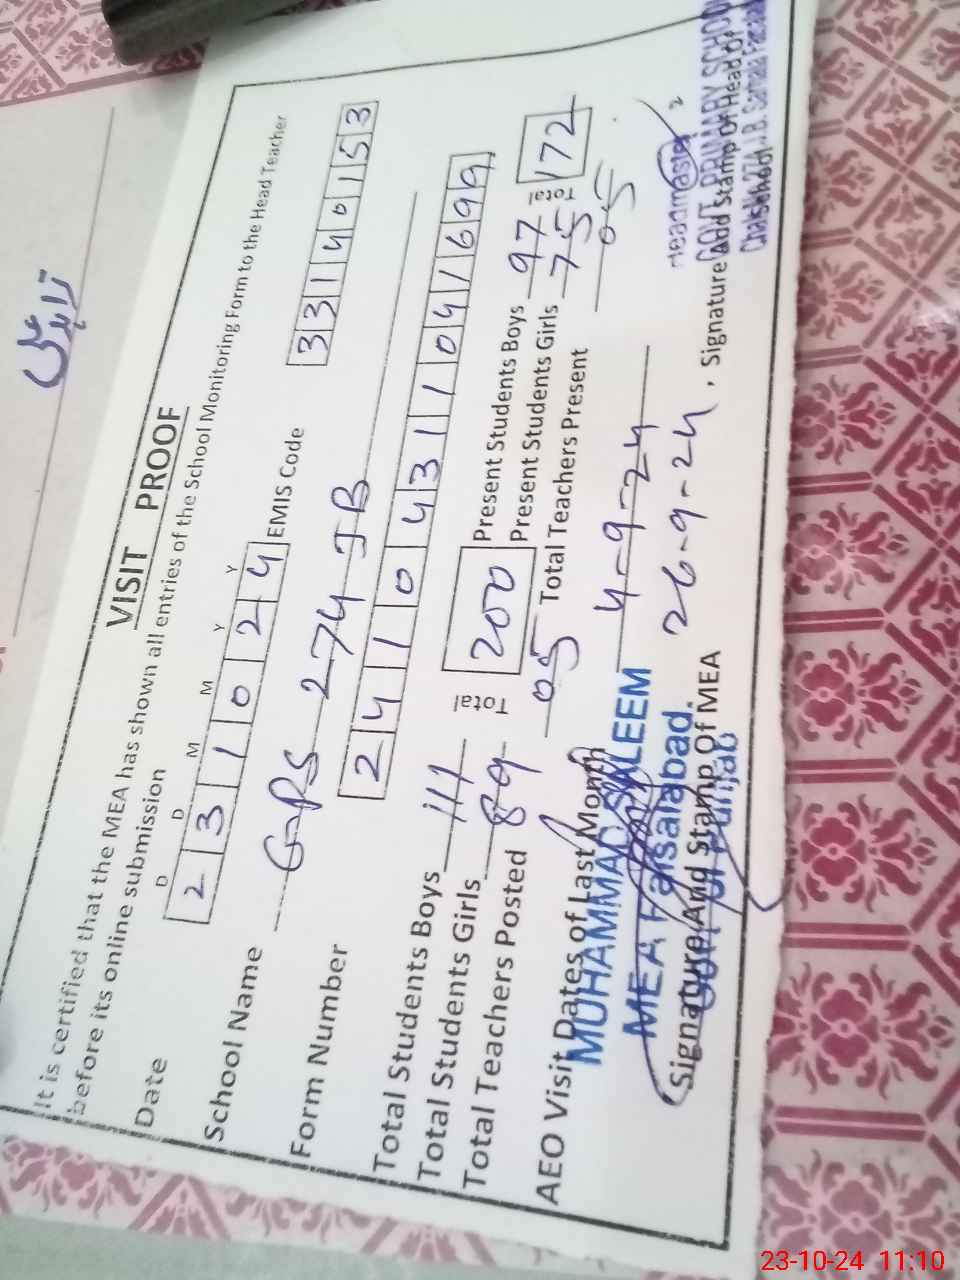 تراب علی
VISIT PROOF
It is certified that the MEA has shown all entries of the School Monitoring Form to the Head Teacher
before its online submission
D D M M Y Y
Date 2 3 1 0 2 4 EMIS Code 3 3 1 4 0 1 5 3
School Name G-PS 274 JB
Form Number 2 4 1 0 4 3 1 1 0 4 1 6 9 9
Total Students Boys 111 Total 200 Present Students Boys 97 Total 172
Total Students Girls 89 Present Students Girls 75
Total Teachers Posted 05 Total Teachers Present 05
AEO Visit Dates of Last Month 4-9-24
26-9-24
MUHAMMAD SALEEM
MEA Faisalabad.
Govt of Punjab
Signature And Stamp Of MEA
Headmaster
GOVT. PRIMARY SCHOOL
Chak No. 274 J.B.
Signature Add Stamp Of Head of
School
23-10-24 11:10